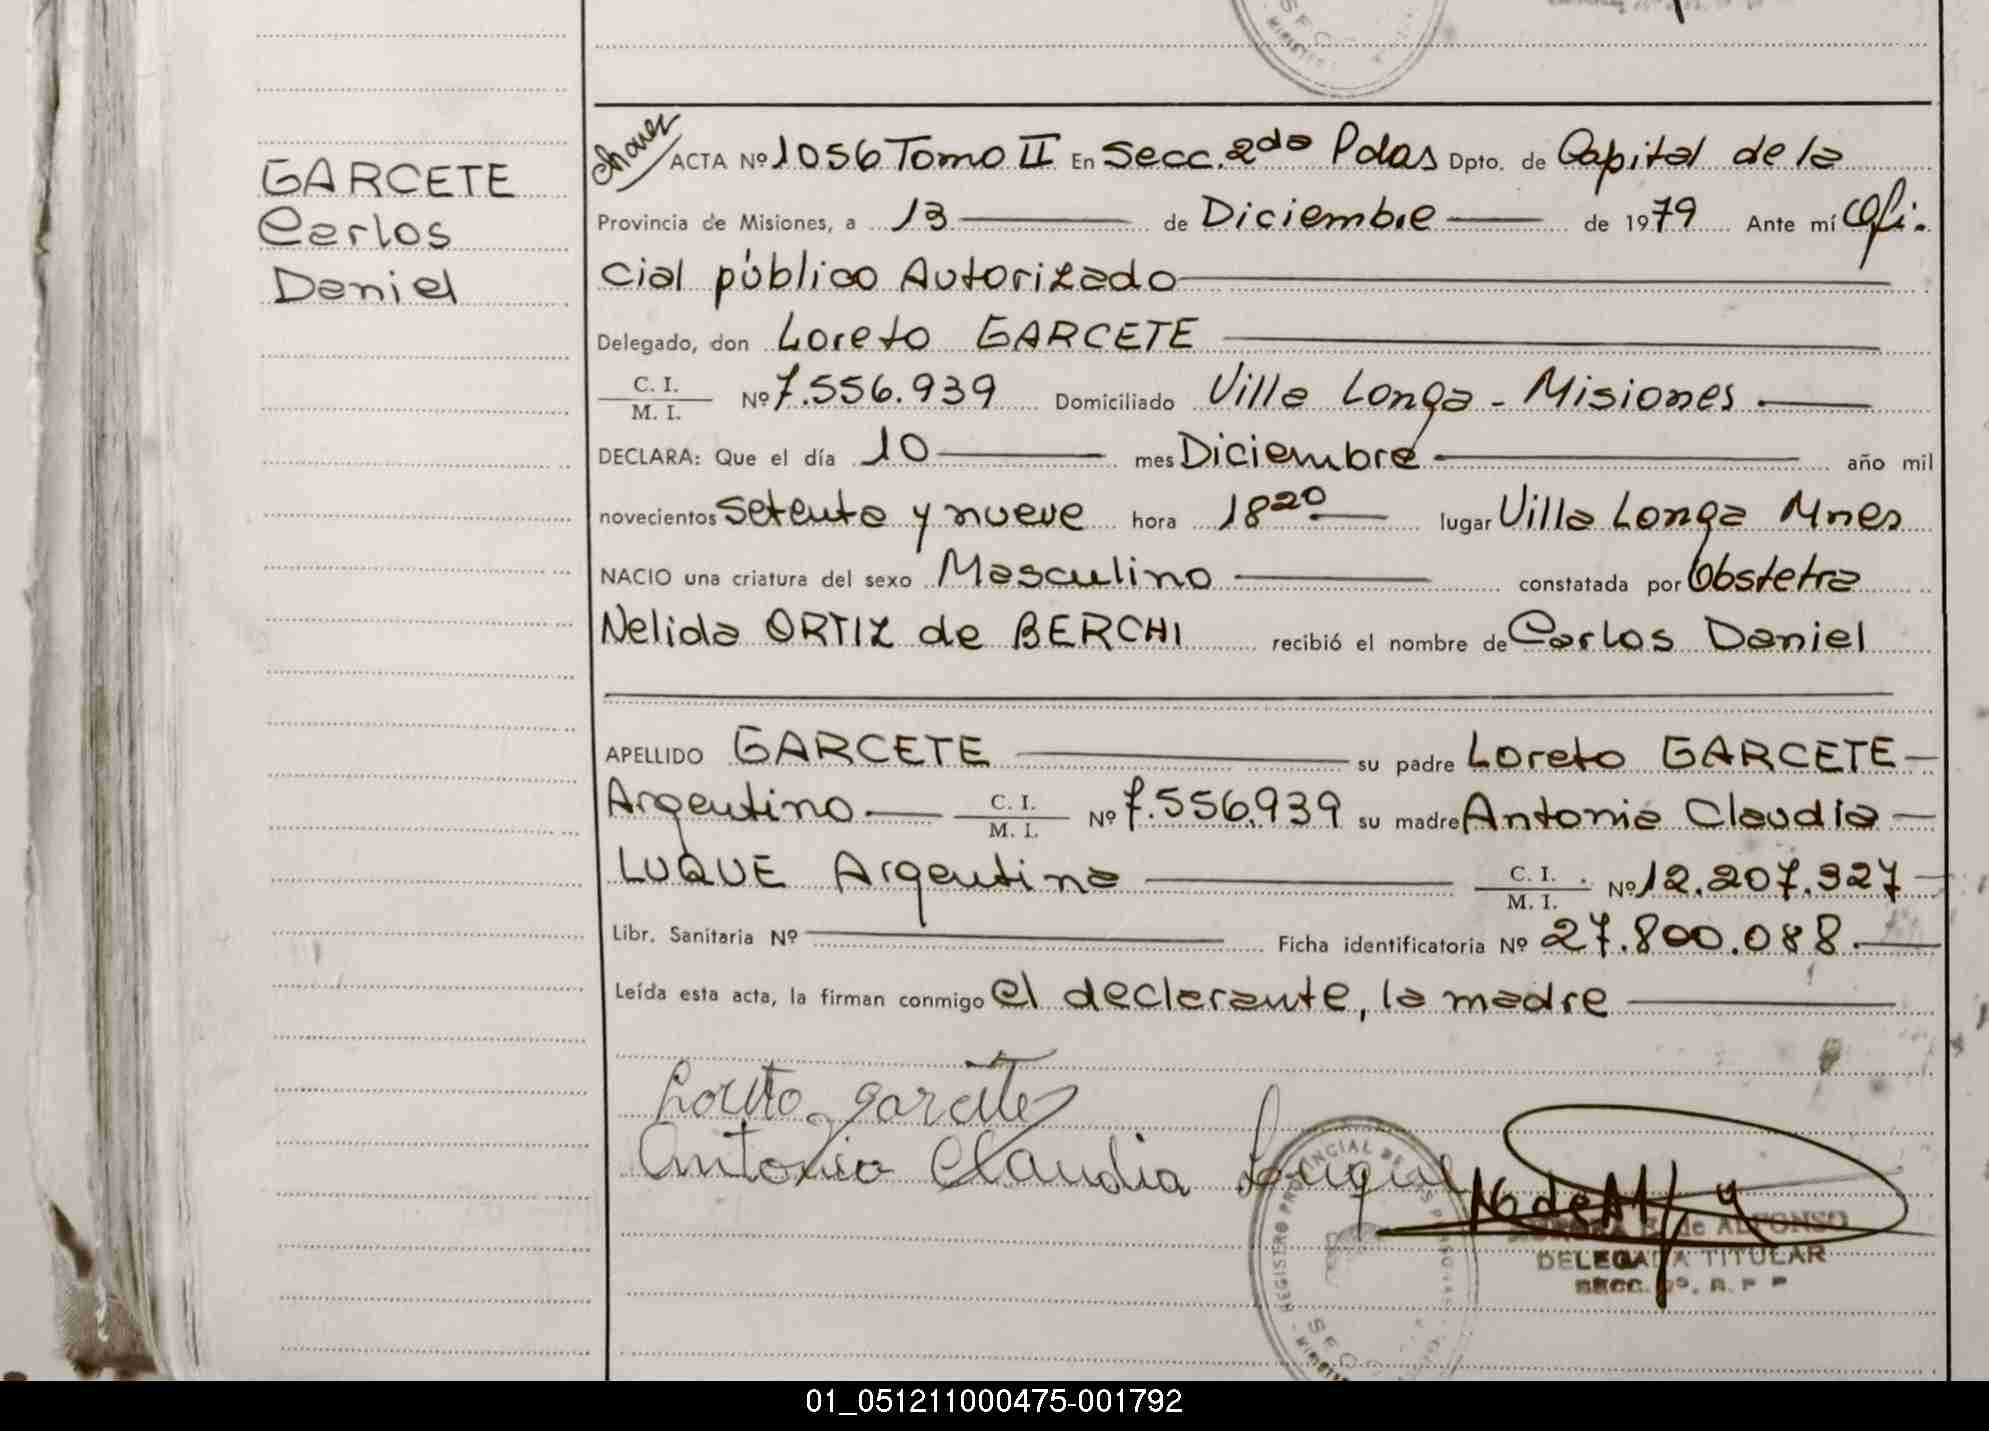 GARCETE
Carlos
Daniel
Chavez
ACTA Nº 1056 Tomo II En Secc. 2da Pdas Dpto. de Capital de la
Provincia de Misiones, a 13 de Diciembre de 1979 Ante mí Ofi-
cial público Autorizado
Delegado, don Loreto GARCETE
C. I.
M. I. Nº 7.556.939 Domiciliado Villa Longa - Misiones
DECLARA: Que el día 10 mes Diciembre año mil
novecientos setenta y nueve hora 18 20 lugar Villa Longa Mnes
NACIO una criatura del sexo Masculino constatada por Obstetra
Nelida ORTIZ de BERCHI recibió el nombre de Carlos Daniel
APELLIDO GARCETE su padre Loreto GARCETE
Argentino C. I.
M. I. Nº 7.556.939 su madre Antonia Claudia
LUQUE Argentina C. I.
M. I. Nº 12.207.327
Libr. Sanitaria Nº Ficha identificatoria Nº 27.800.088.
Leída esta acta, la firman conmigo el declarante, la madre
Loreto garcete
Antonia Claudia Luque
REGISTRO PROVINCIAL DE LAS PERSONAS
de ALFONSO
DELEGADA TITULAR
SECC.
01_051211000475-001792